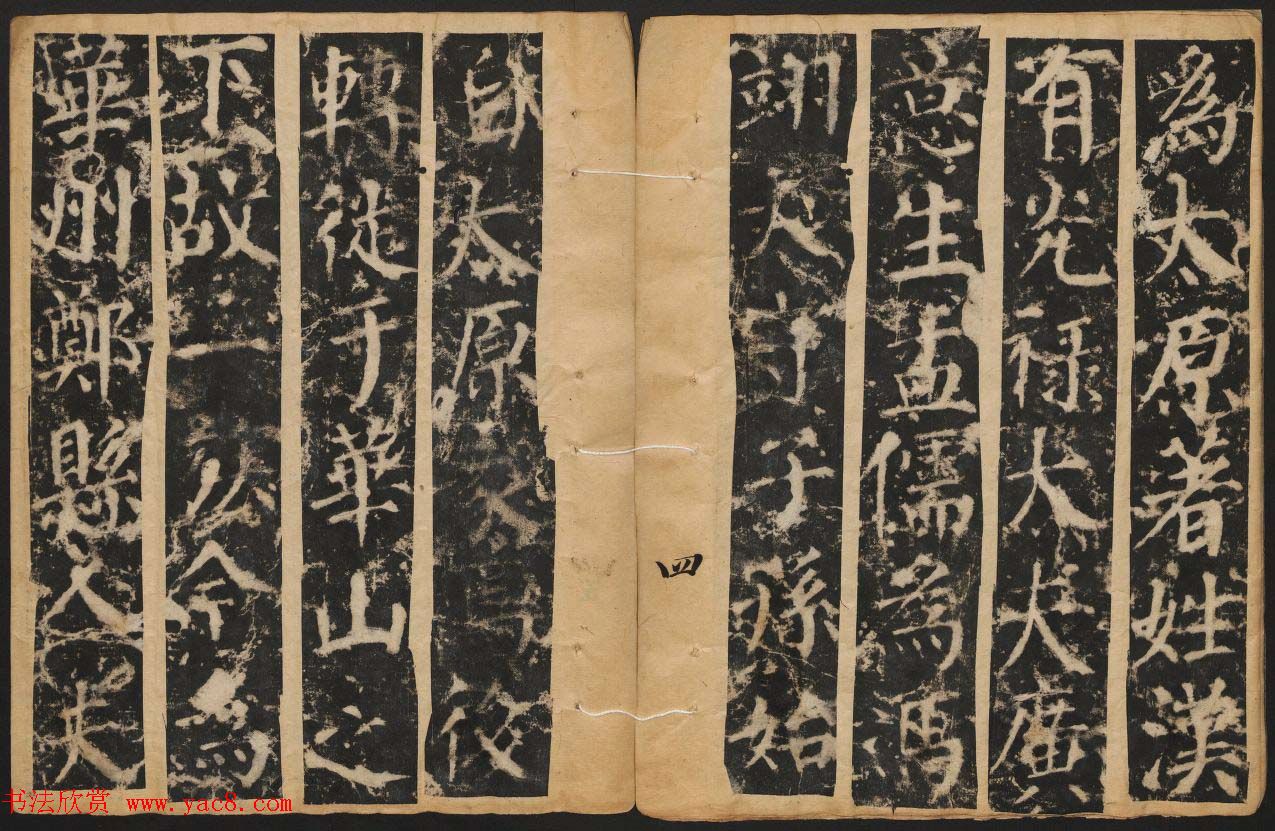 為太原著姓漢
有光祿大夫廣
意生孟儒為馮
翊太守子孫始
四
自太原家焉後
轉徙于華山之
下故一今為
華州鄭縣人夫
书法欣赏 www.yac8.com